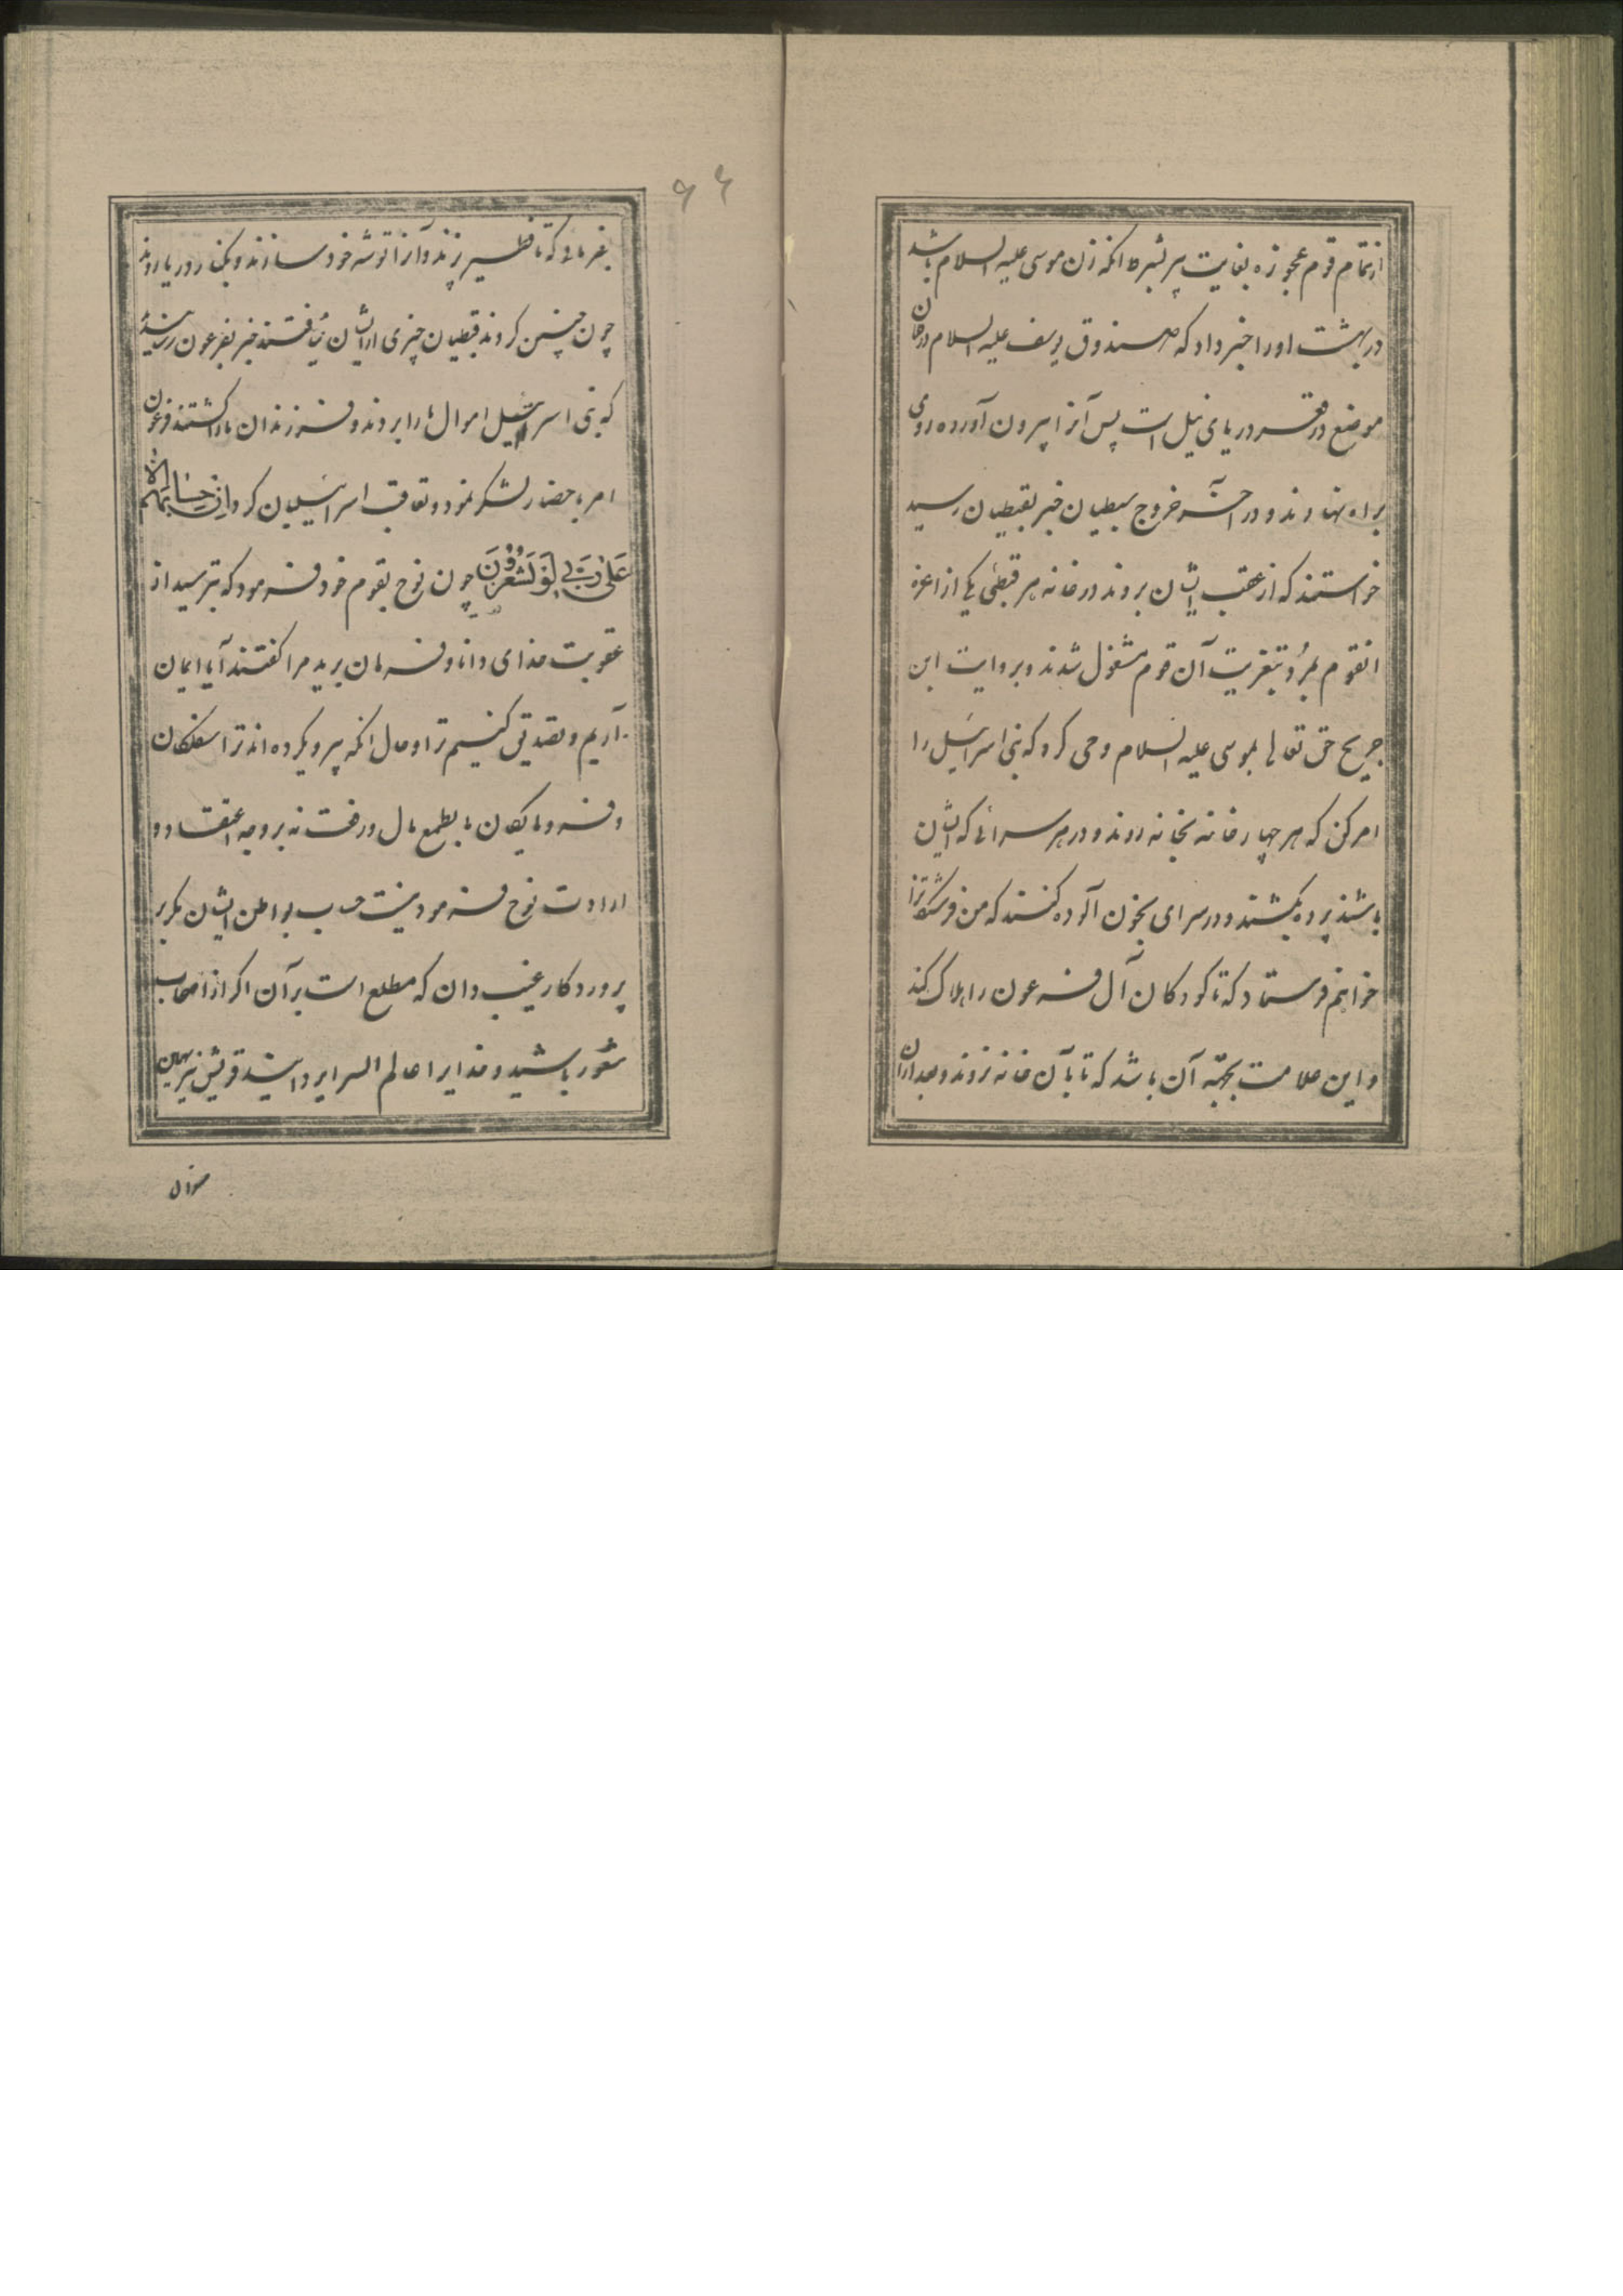 از تمام قوم عجوزه بغایت پیر بشرط انکه زن موسی علیه السلام باشد
در بهشت اورا خبر داد که صندوق یوسف علیه السلام در فلان
موضع در قعر دریای نیل است پس آنرا بیرون آورده روی
براه نهادند و در آخر خروج سبطیان خبر بقبطیان رسید
خواستند که از عقب ایشان بروند در خانه هر قبطی یکی از اعزه
انقوم بمرد و بتعزیت آن قوم مشغول شدند و بروایت ابن
جریح حق تعالی بموسی علیه السلام وحی کرد که بنی اسرائیل را
امر کن که هر چهار خانه بخانه روند و در هر سرائی که ایشان
باشند بره بکشند و در سرای بخون آلوده کنند که من فرشتکانرا
خواهم فرستاد که تا کودکان آل فرعون را هلاک کند
و این علامت بجهة آن باشد که تا بآن خانه نروند و بعد از ان
۶۶
بفرمائی که تا فطیر پزند و آنرا توشه خود سازند و بکنار دریا روند
چون چنین کردند قبطیان چیزی از ایشان نیافتند خبر بفرعون رسید
که بنی اسرائیل اموال ما را بردند و فرزندان ما را کشتند فرعون
امر باحضار لشکر نمود و تعاقب اسرائیلیان کرد اِنْ حِسَابُهُمْ اِلَّا
عَلٰی رَبّی لَوْ تَشْعُرُونَ چون نوح بقوم خود فرمود که بترسید از
عقوبت خدای دانا و فرمان برید مرا کفتند آیا ایمان
آریم و تصدیق کنیم ترا و حال انکه پیروی کرده اند ترا سفلکان
و فرومایکان ما بطمع مال و رفعت نه بر وجه اعتقاد و
ارادت نوح فرمود نیست حساب بواطن ایشان مکر بر
پروردکار غیب دان که مطلع است بر آن اکر از اصحاب
شعور باشید و خدایرا عالم السرایر دانید قریش نیز همین
سؤال